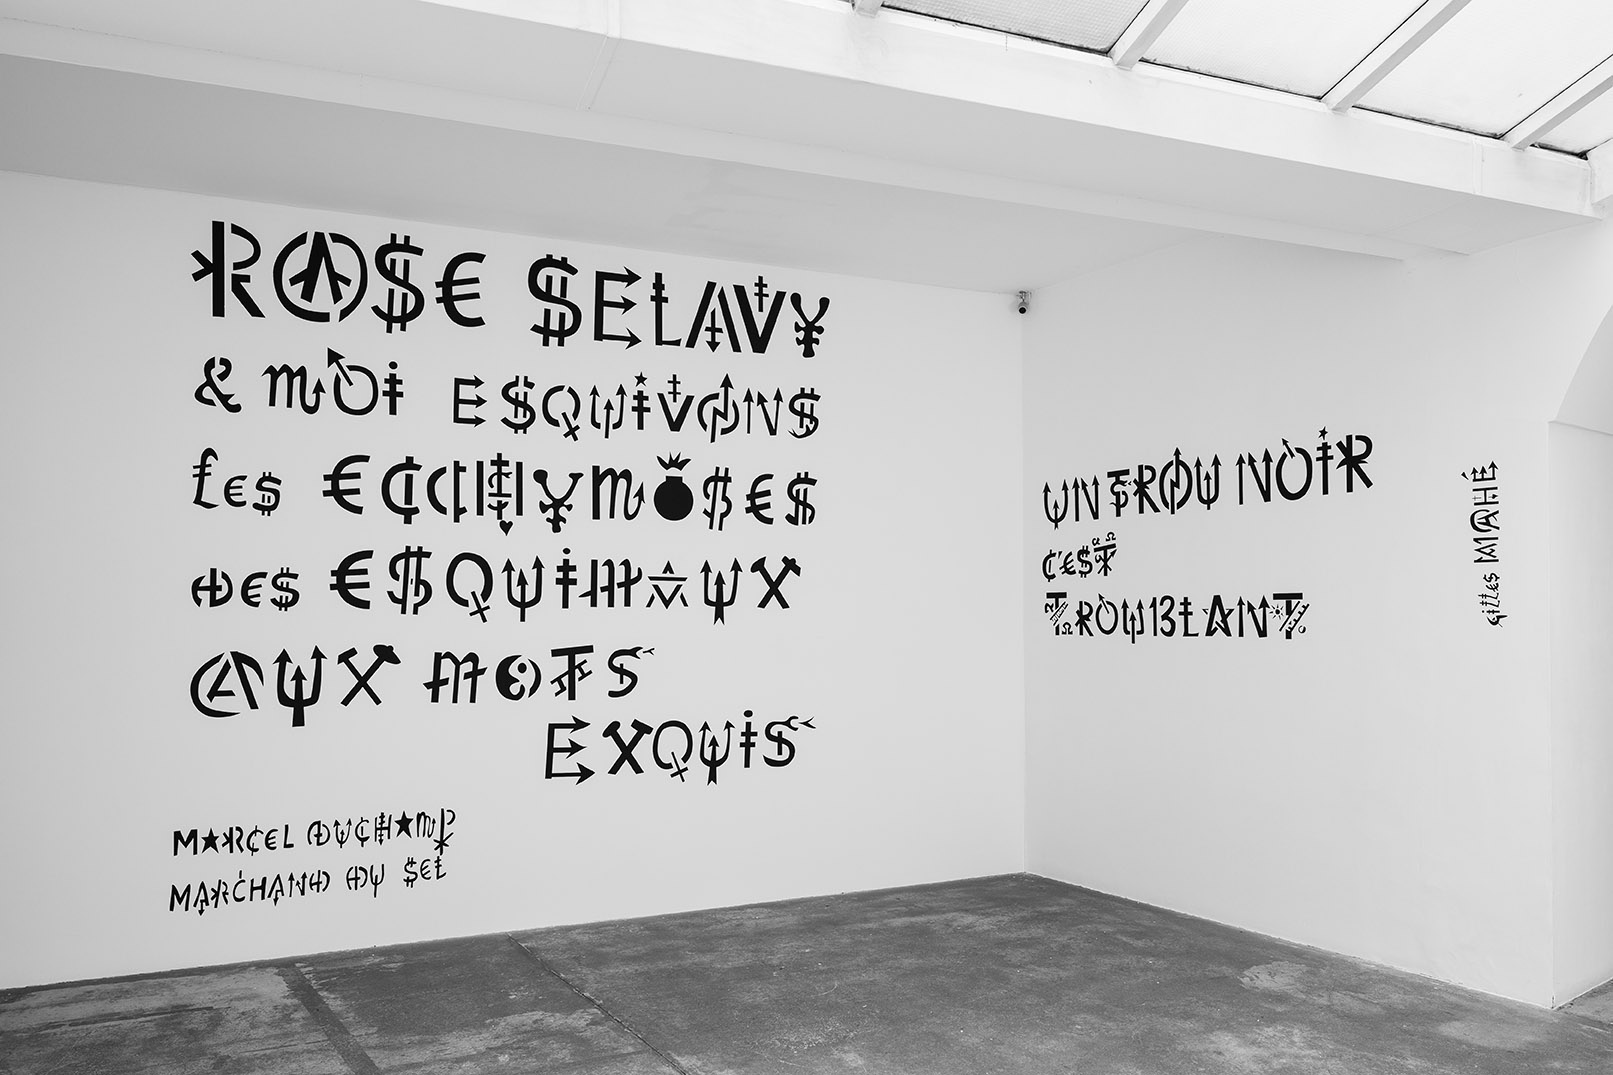 ROSE SELAVY
& MOI ESQUIVONS
LES ECCHYMOSES
DES ESQUIMAUX
AUX MOTS
EXQUIS
MARCEL DUCHAMP
MARCHAND DU SEL
UN TROU NOIR
C'EST
TROUBLANT
GILLES MAHÉ